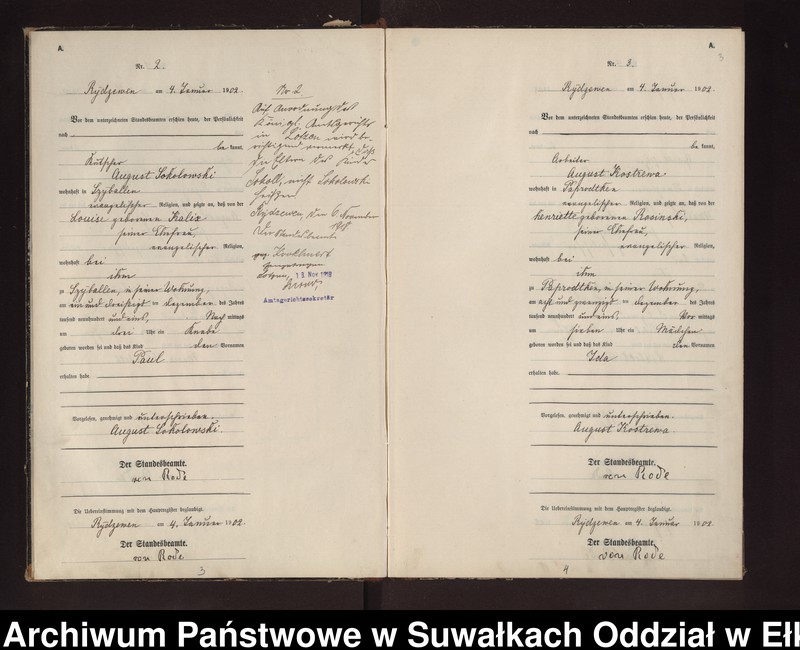 A.
Nr. 2.
Rydzewen am 4. Januar 1902.
Vor dem unterzeichneten Standesbeamten erschien heute, der Persönlichkeit
nach
bekannt,
Kutscher
August Sokolowski
wohnhaft in Szyballen
evangelischer Religion, und zeigte an, daß von der
Louise geborenen Kalix
seiner Ehefrau,
evangelischer Religion,
wohnhaft bei
ihm
zu Szyballen, in seiner Wohnung,
am ein und dreißigst ten Dezember des Jahres
tausend neunhundert und eins, Nach mittags
um drei Uhr ein Knabe
geboren worden sei und daß das Kind den Vornamen
Paul
erhalten habe.
Vorgelesen, genehmigt und unterschrieben.
August Sokolowski.
Der Standesbeamte.
von Rode
Die Uebereinstimmung mit dem Hauptregister beglaubigt.
Rydzewen am 4. Januar 1902.
Der Standesbeamte.
von Rode
3
Nr 2
Auf Anordnung des
Königl. Amtsgerichts
in Lötzen wird be-
richtigend vermerkt, daß
die Eltern des Kindes
Sokoll, nicht Sokolowski
heißen.
Rydzewen, den 6. November
Der Standesbeamte
Lötzen, 13. Nov 1918
Amtsgerichtssekretär
A.
3
Nr. 3.
Rydzewen am 4. Januar 1902.
Vor dem unterzeichneten Standesbeamten erschien heute, der Persönlichkeit
nach
bekannt,
Arbeiter
August Kostrewa
wohnhaft in Paprodtken
evangelischer Religion, und zeigte an, daß von der
Henriette geborenen Rosinski,
seiner Ehefrau,
evangelischer Religion,
wohnhaft bei
ihm
zu Paprodtken, in seiner Wohnung,
am acht und zwanzigst ten Dezember des Jahres
tausend neunhundert und eins, Vor mittags
um sieben Uhr ein Mädchen
geboren worden sei und daß das Kind den Vornamen
Ida
erhalten habe.
Vorgelesen, genehmigt und unterschrieben.
August Kostrewa.
Der Standesbeamte.
von Rode
Die Uebereinstimmung mit dem Hauptregister beglaubigt.
Rydzewen am 4. Januar 1902.
Der Standesbeamte.
von Rode
4
Archiwum Państwowe w Suwałkach Oddział w Ełk